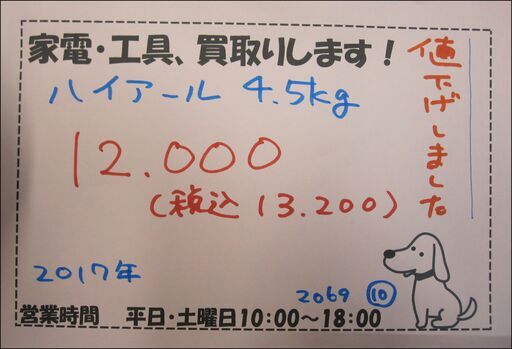 家電・工具、買取りします!
値下げしました
ハイアール 4.5kg
12.000
(税込 13.200)
2017年
2069 ⑩
営業時間 平日・土曜日10:00～18:00